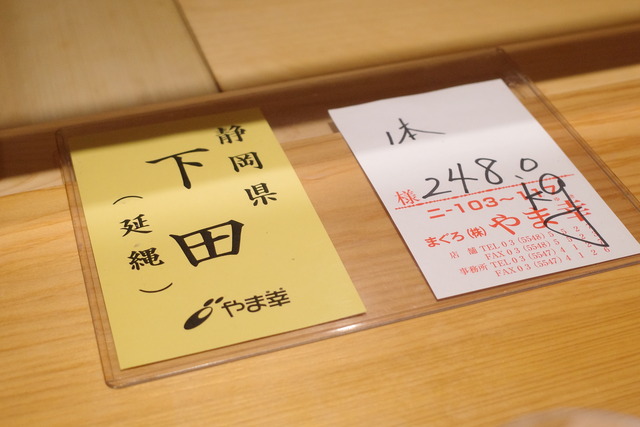 静岡県
下田
（延縄）
やま幸
1本
248.0
kg
様
ニ-103~
まぐろ(株)やま幸
店舗TEL03(5548)
FAX03(5548)
事務所TEL03(5547)
FAX03(5547)4126